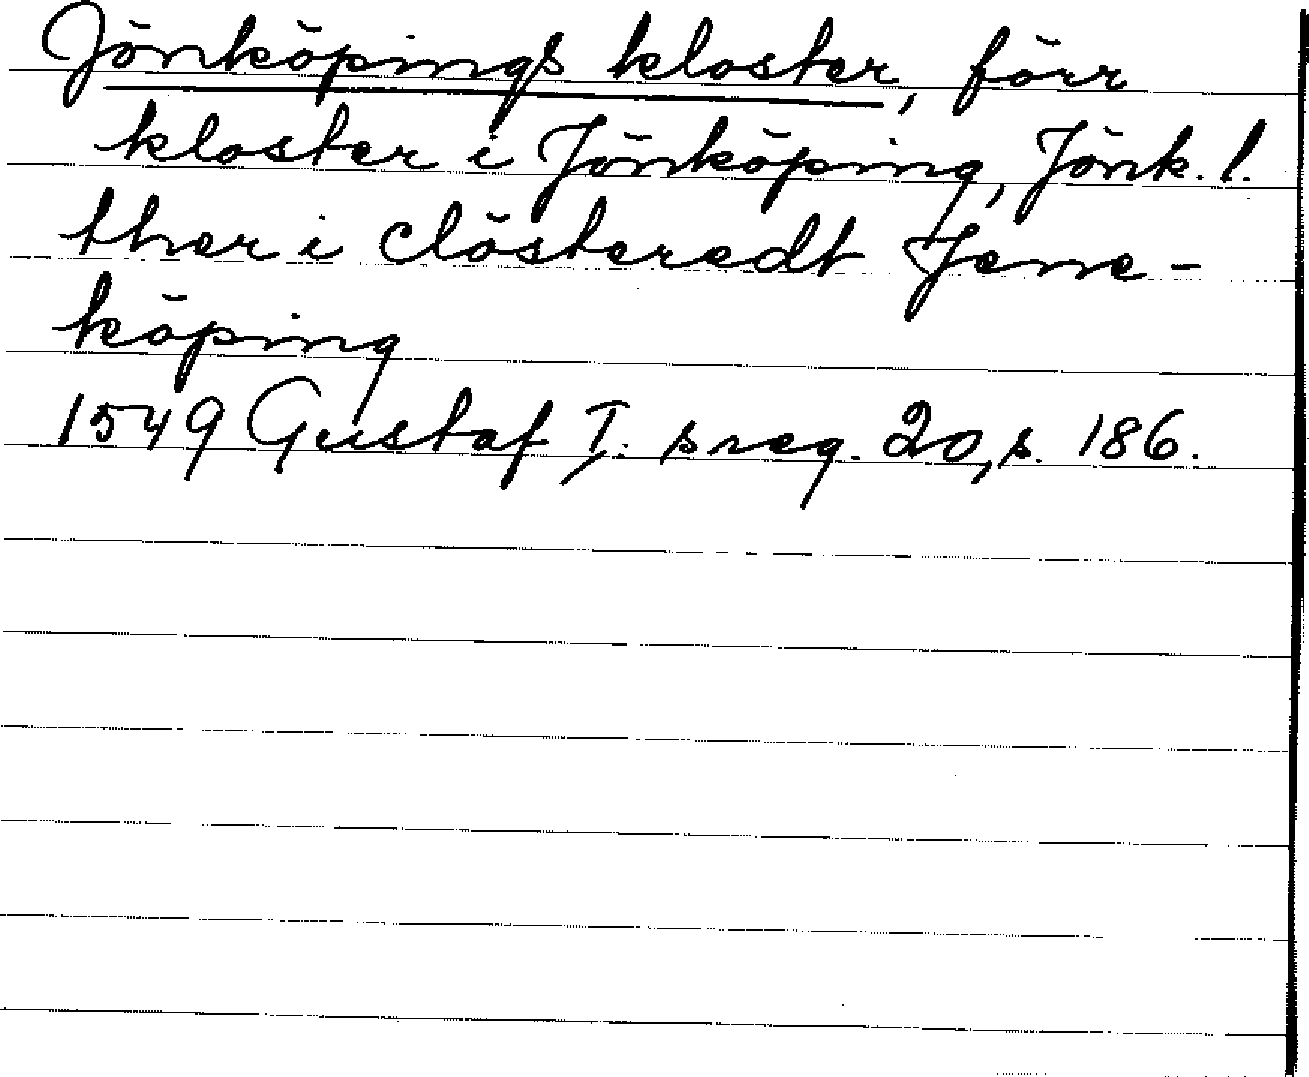 Jönköpings kloster, förr
kloster i Jönköping, Jönk. l.
ther i clösteredt Jene-
köping
1549 Gustaf I: s reg. 20, s. 186.